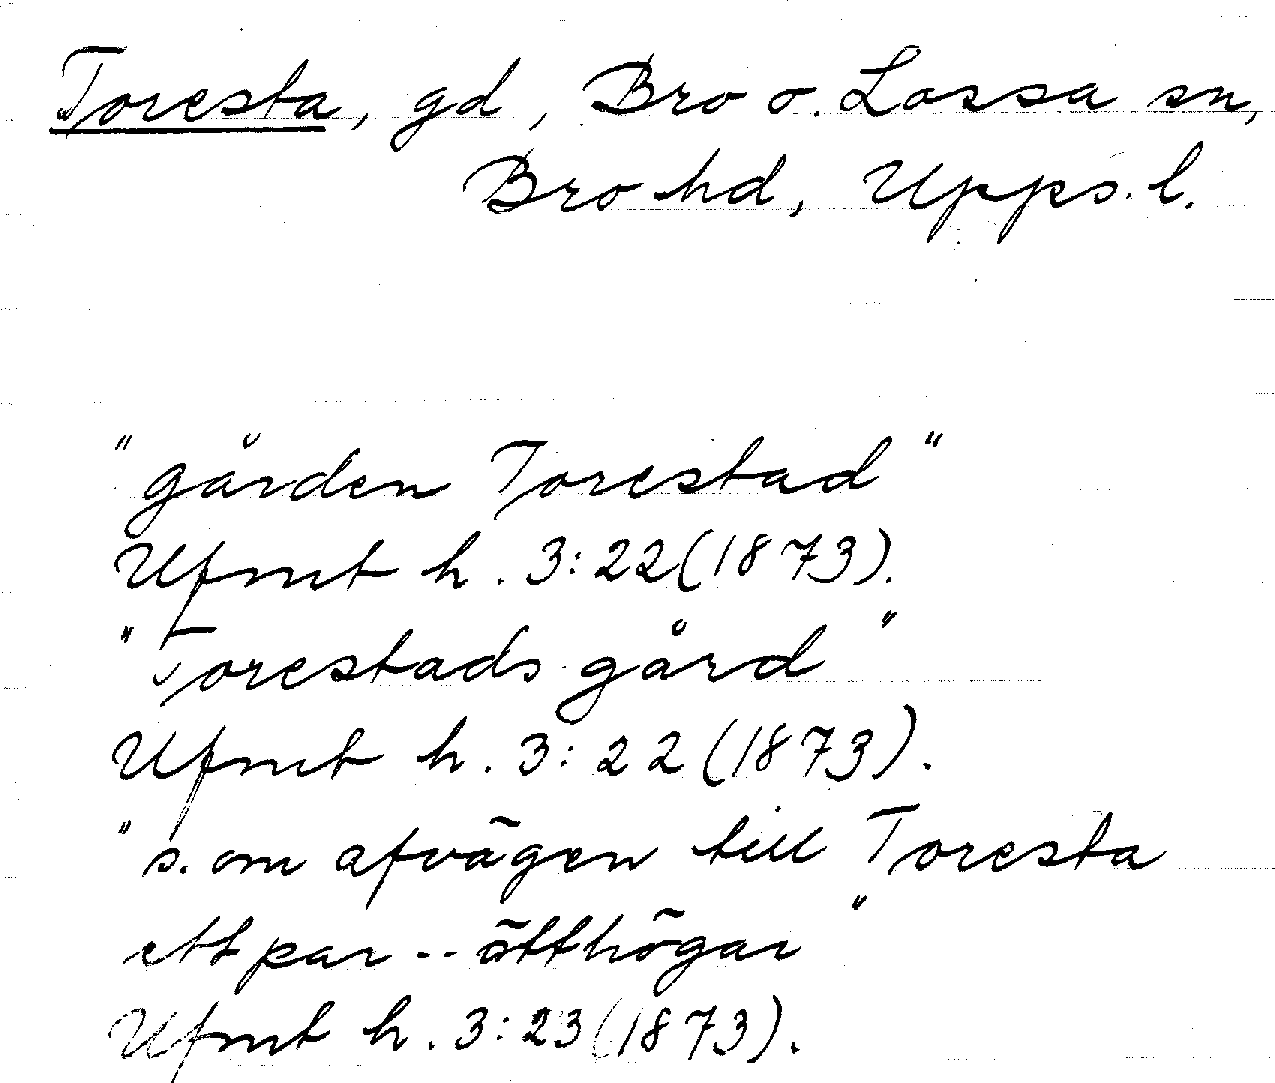 Toresta, gd, Bro o. Lossa sn,
Bro hd, Upps. l.
"gården Torestad"
Ufmt h. 3:22 (1873).
"Torestads gård"
Ufmt h. 3:22 (1873).
"s. om afvägen till Toresta
ett par -- ätthögar"
Ufmt h. 3:23 (1873).